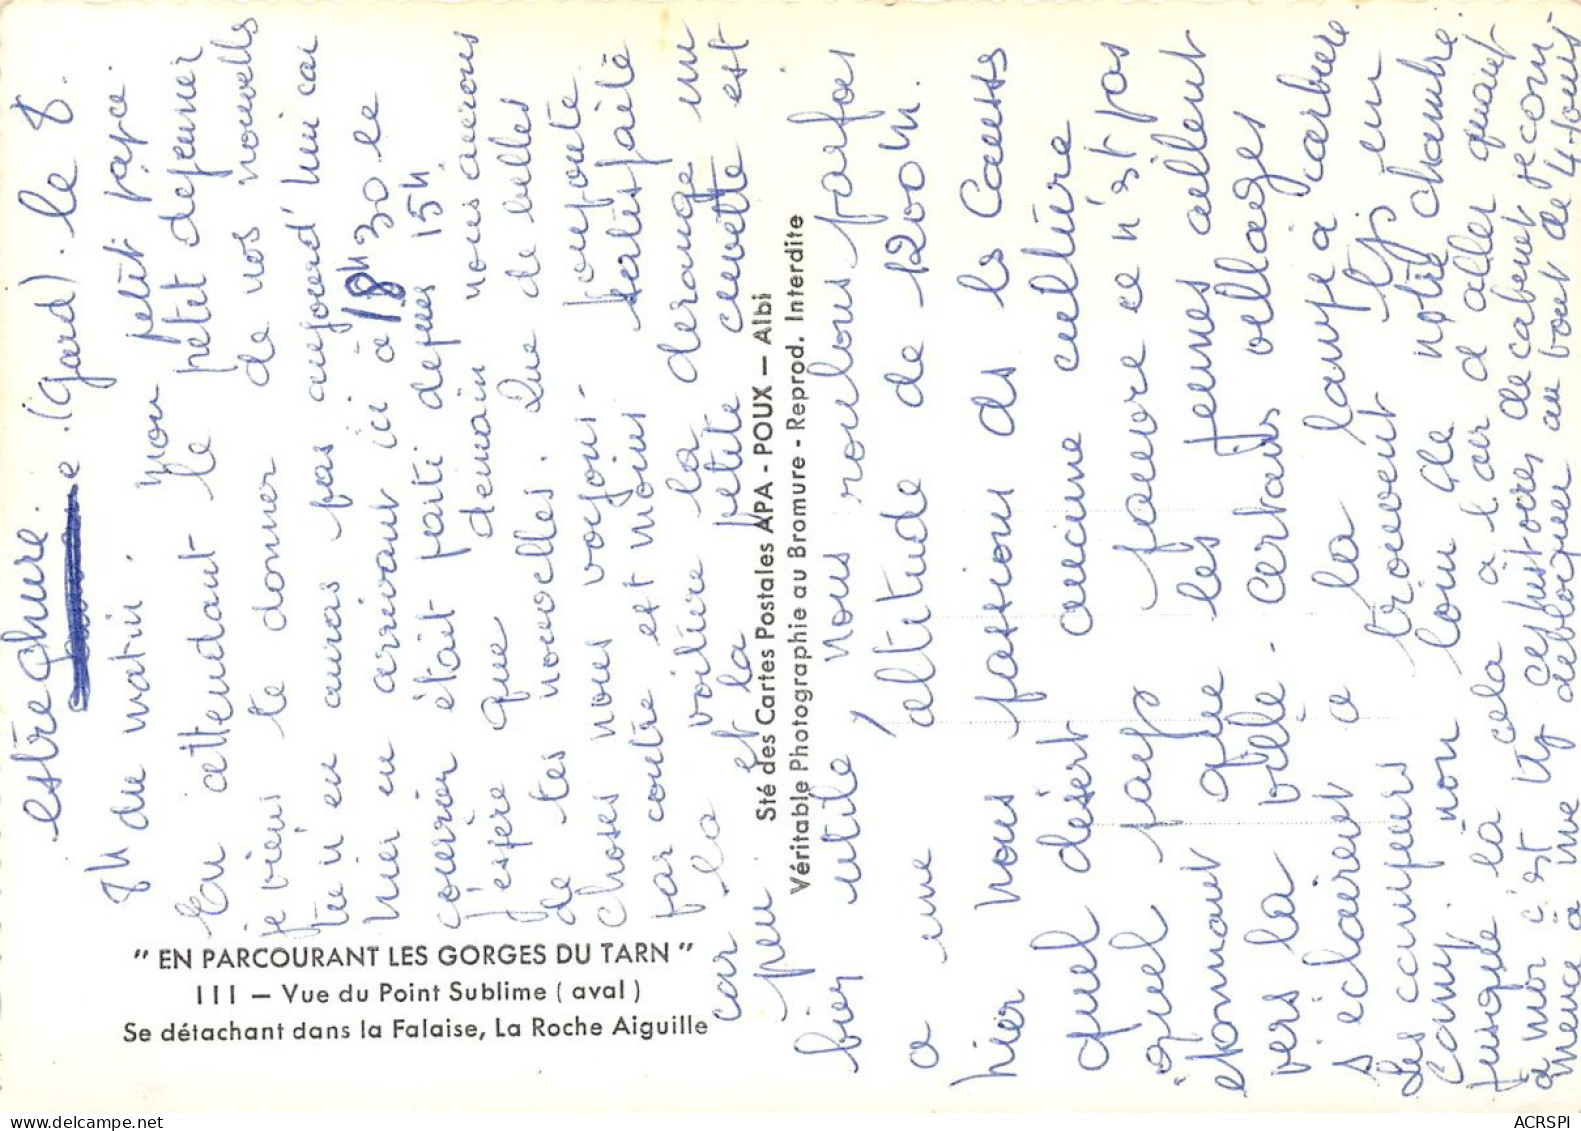 estrechure. (Gard). le 8.
8h du matin. Mon petit pape.
En attendant le petit dejeuner
je viens te donner de nos nouvells
tu n'en auras pas aujourd'hui car
hier en arrivant ici à 18h30 le
courrier était parti depuis 15h.
j'espère que demain nous aurons
de tes nouvelles. Que de belles
choses nous voyons. Toujoute
par contre est moins satisfaite
car la voiture la derange un
peu et la petite cuvette est
bien utile nous roulous parfois
a une altitude de 1200 m.
hier nous passion ds ls Causss
quel désert aucune culture
quel pays pauvre ce n'est pas
étonnant que les jeunes aillent
vers la ville. certains villages
s'éclairent a la lampe a carbure
Les campeurs trouvent tjs un
camp, non loin de notre chambre.
jusque là cela a l'air d'aller quant
a moi c'est tjs ces histoires de cabinet je com-
mence a me debloquer au bout de 4 jours
" EN PARCOURANT LES GORGES DU TARN "
111 — Vue du Point Sublime ( aval )
Se détachant dans la Falaise, La Roche Aiguille
Sté des Cartes Postales APA - POUX — Albi
Véritable Photographie au Bromure - Reprod. Interdite
ACRSPI